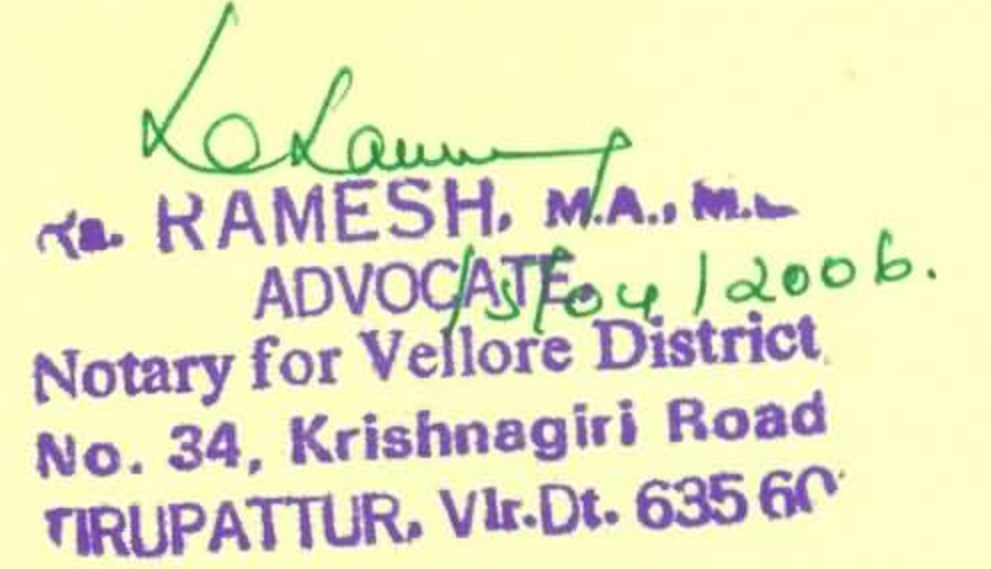 RAMESH, M.A., M.L
ADVOCATE,
15/04/2006.
Notary for Vellore District
No. 34, Krishnagiri Road
TIRUPATTUR, Vlr.Dt. 635 60